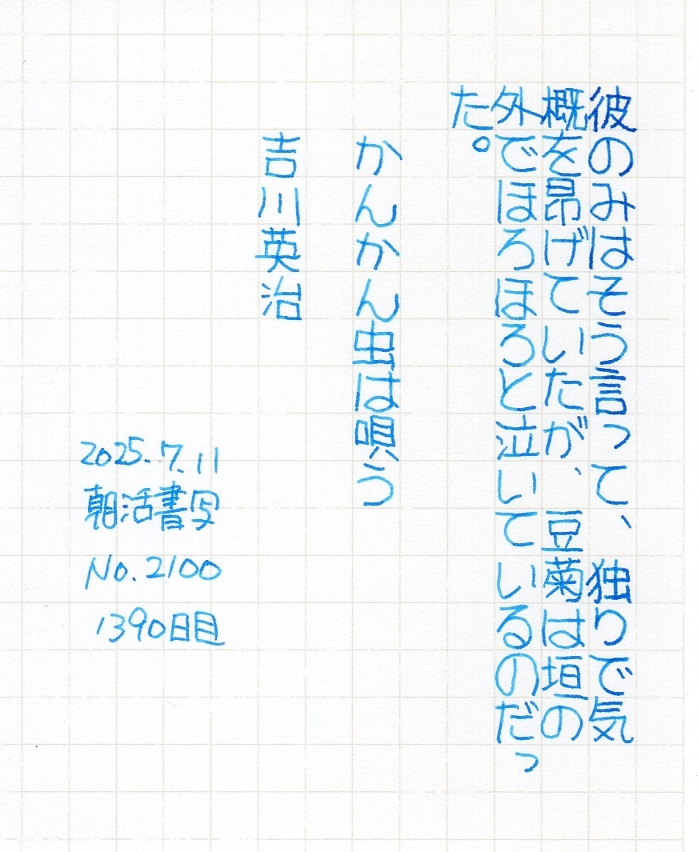 彼のみはそう言って、独りで気
概を昂げていたが、豆菊は垣の
外でほろほろと泣いているのだっ
た。
かんかん虫は唄う
吉川英治
2025.7.11
朝活書写
No.2100
1390日目